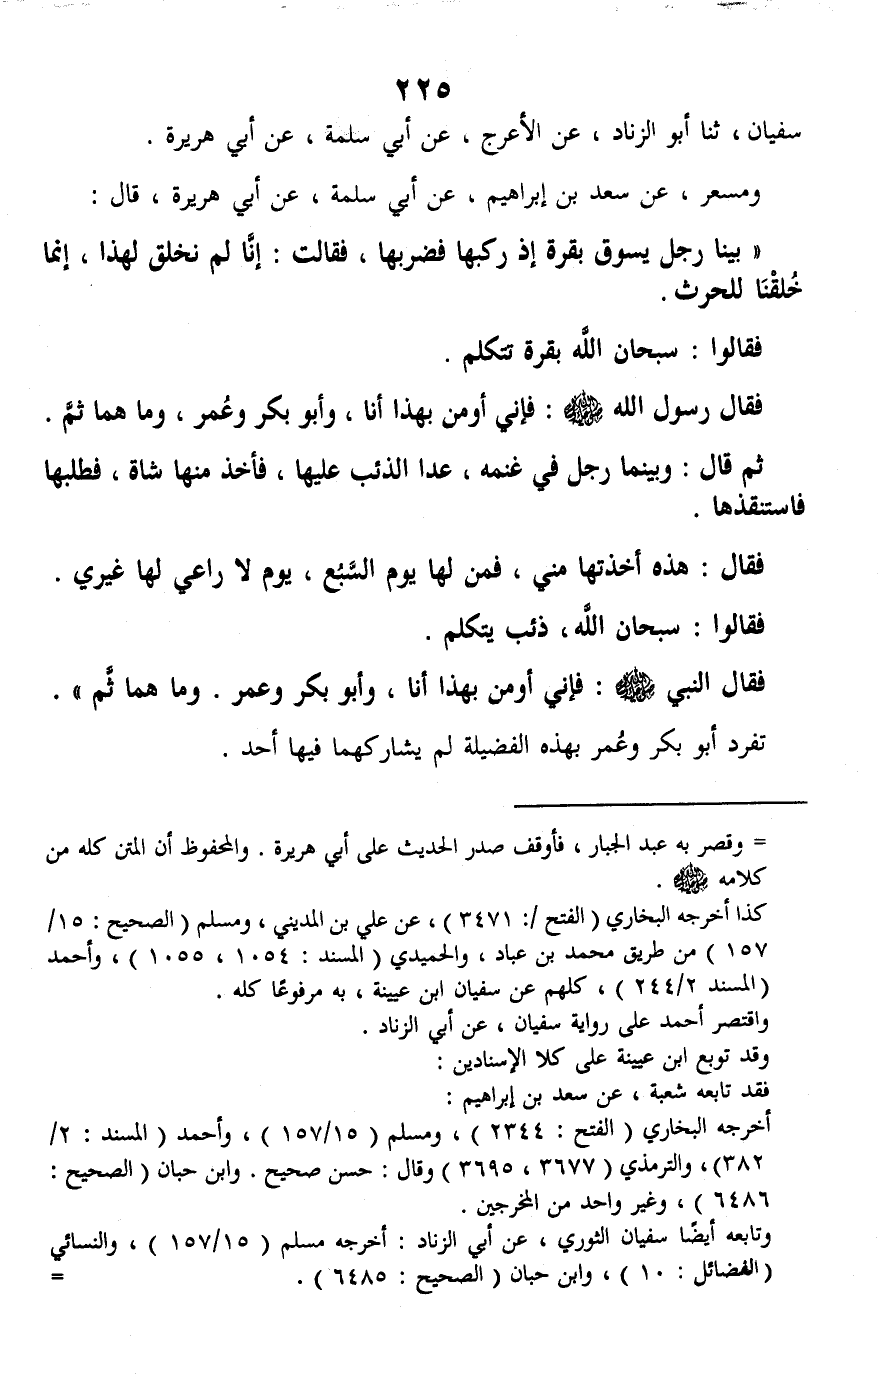 ٢٢٥
سفيان ، ثنا أبو الزناد ، عن الأعرج ، عن أبي سلمة ، عن أبي هريرة .
ومسعر ، عن سعد بن إبراهيم ، عن أبي سلمة ، عن أبي هريرة ، قال :
« بينا رجل يسوق بقرة إذ ركبها فضربها ، فقالت : إنَّا لم نخلق لهذا ، إنما
خُلقْنَا للحرث .
فقالوا : سبحان اللَّه بقرة تتكلم .
فقال رسول الله ﷺ : فإني أومن بهذا أنا ، وأبو بكر وعُمر ، وما هما ثمَّ .
ثم قال : وبينما رجل في غنمه ، عدا الذئب عليها ، فأخذ منها شاة ، فطلبها
فاستنقذها .
فقال : هذه أخذتها مني ، فمن لها يوم السَّبُع ، يوم لا راعي لها غيري .
فقالوا : سبحان اللَّه ، ذئب يتكلم .
فقال النبي ﷺ : فإني أومن بهذا أنا ، وأبو بكر وعمر . وما هما ثَّم » .
تفرد أبو بكر وعُمر بهذه الفضيلة لم يشاركهما فيها أحد .
= وقصر به عبد الجبار ، فأوقف صدر الحديث على أبي هريرة . والمحفوظ أن المتن كله من
كلامه ﷺ .
كذا أخرجه البخاري ( الفتح /: ٣٤٧١ ) ، عن علي بن المديني ، ومسلم ( الصحيح : ١٥/
١٥٧ ) من طريق محمد بن عباد ، والحميدي ( المسند : ١٠٥٤ ، ١٠٥٥ ) ، وأحمد
( المسند ٢٤٤/٢ ) ، كلهم عن سفيان ابن عيينة ، به مرفوعًا كله .
واقتصر أحمد على رواية سفيان ، عن أبي الزناد .
وقد توبع ابن عيينة على كلا الإسنادين :
فقد تابعه شعبة ، عن سعد بن إبراهيم :
أخرجه البخاري ( الفتح : ٢٣٤٤ ) ، ومسلم ( ١٥٧/١٥ ) ، وأحمد ( المسند : ٢/
٣٨٢) ، والترمذي ( ٣٦٧٧ ، ٣٦٩٥ ) وقال : حسن صحيح . وابن حبان ( الصحيح :
٦٤٨٦ ) ، وغير واحد من المخرجين .
وتابعه أيضًا سفيان الثوري ، عن أبي الزناد : أخرجه مسلم ( ١٥٧/١٥ ) ، والنسائي
( الفضائل : ١٠ ) ، وابن حبان ( الصحيح : ٦٤٨٥ ) . =